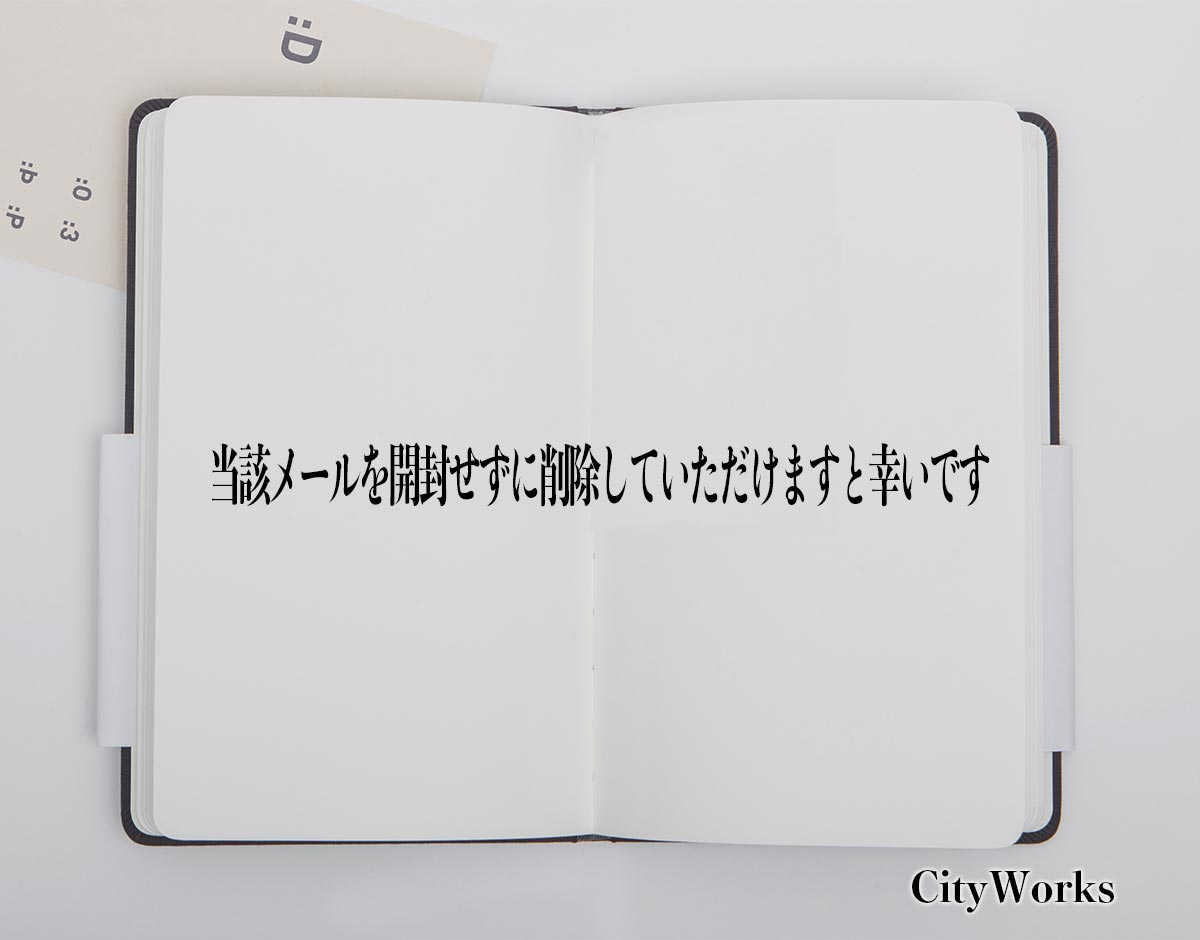 :D
:P
:O
:P
:3
当該メールを開封せずに削除していただけますと幸いです
CityWorks